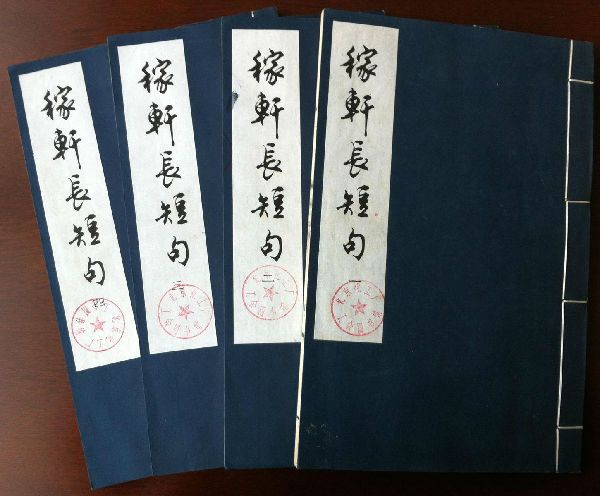 稼軒長短句 一
稼軒長短句 二
稼軒長短句 三
稼軒長短句 四